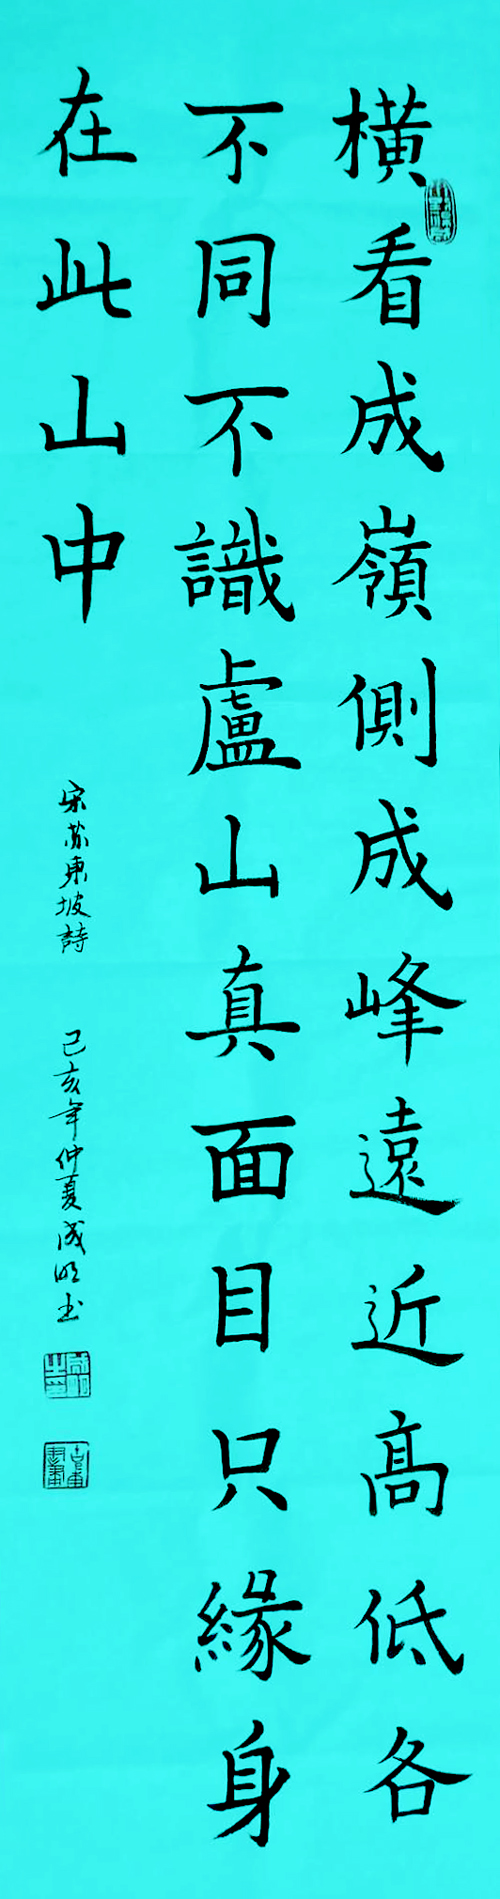 橫看成嶺側成峰遠近高低各
不同不識盧山真面目只緣身
在此山中
宋蘇東坡詩 己亥年仲夏成明书